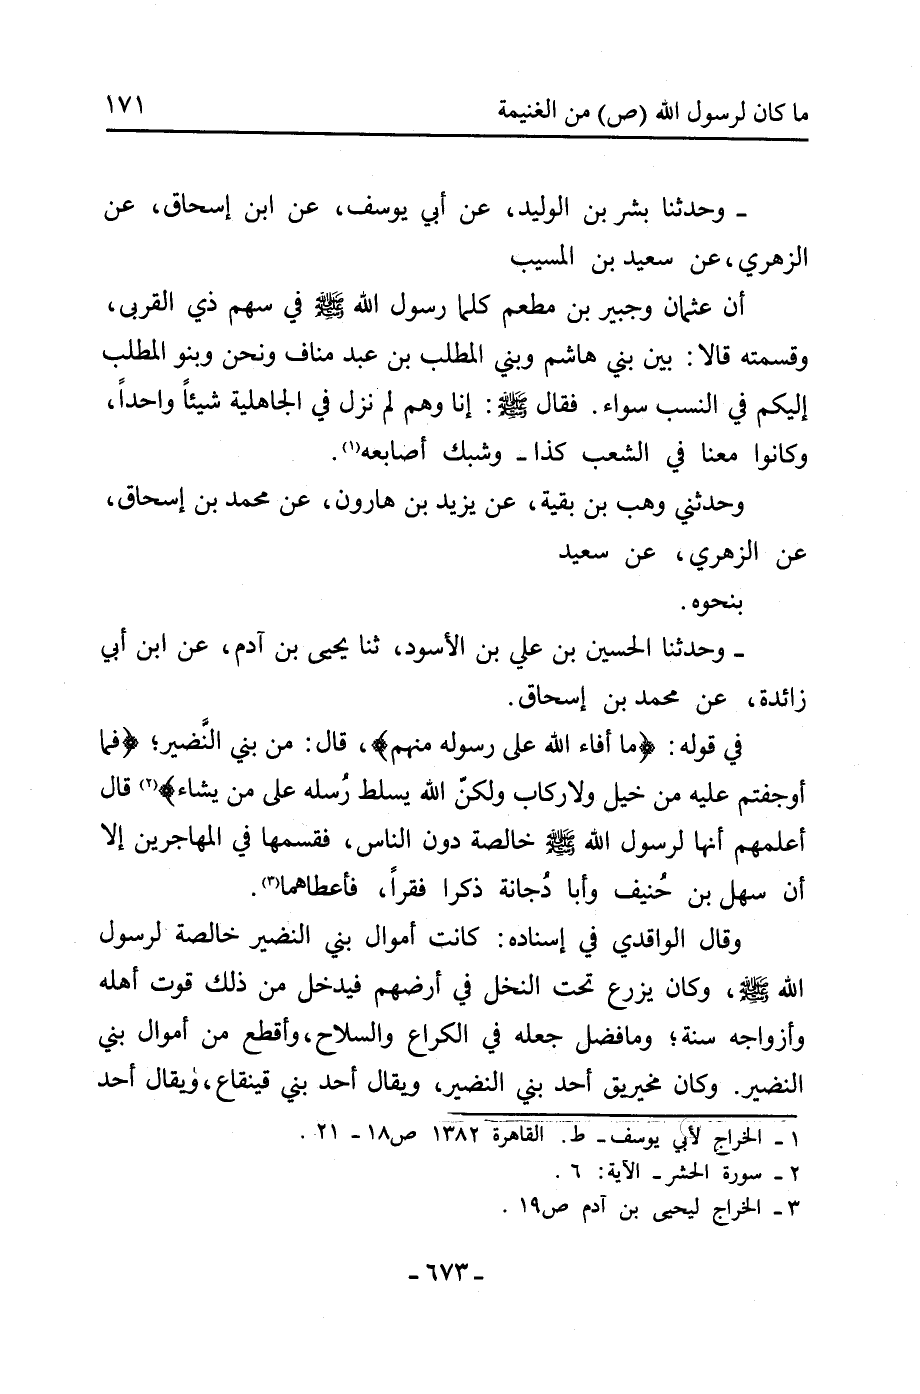 ما كان لرسول الله (ص) من الغنيمة ١٧١
ـ وحدثنا بشر بن الوليد، عن أبي يوسف، عن ابن إسحاق، عن
الزهري، عن سعيد بن المسيب
أن عثمان وجبير بن مطعم كلما رسول الله ﷺ في سهم ذي القربى،
وقسمته قالا: بين بني هاشم وبني المطلب بن عبد مناف ونحن وبنو المطلب
إليكم في النسب سواء. فقال ﷺ: إنا وهم لم نزل في الجاهلية شيئاً واحداً،
وكانوا معنا في الشعب كذا ـ وشبك أصابعه(١).
وحدثني وهب بن بقية، عن يزيد بن هارون، عن محمد بن إسحاق،
عن الزهري، عن سعيد
بنحوه.
ـ وحدثنا الحسين بن علي بن الأسود، ثنا يحيى بن آدم، عن ابن أبي
زائدة، عن محمد بن إسحاق.
في قوله: ﴿ما أفاء الله على رسوله منهم﴾، قال: من بني النَّضير؛ ﴿فما
أوجفتم عليه من خيل ولاركاب ولكنّ الله يسلط رُسله على من يشاء﴾(٢) قال
أعلمهم أنها لرسول الله ﷺ خالصة دون الناس، فقسمها في المهاجرين إلا
أن سهل بن حُنيف وأبا دُجانة ذكرا فقراً، فأعطاهما(٣).
وقال الواقدي في إسناده: كانت أموال بني النضير خالصة لرسول
الله ﷺ، وكان يزرع تحت النخل في أرضهم فيدخل من ذلك قوت أهله
وأزواجه سنة؛ ومافضل جعله في الكراع والسلاح، وأقطع من أموال بني
النضير. وكان مخيريق أحد بني النضير، ويقال أحد بني قينقاع، ويقال أحد
١ ـ الخراج لأبي يوسف ـ ط. القاهرة ١٣٨٢ ص١٨ ـ ٢١.
٢ ـ سورة الحشر ـ الآية: ٦.
٣ ـ الخراج ليحيى بن آدم ص١٩.
ـ ٦٧٣ ـ